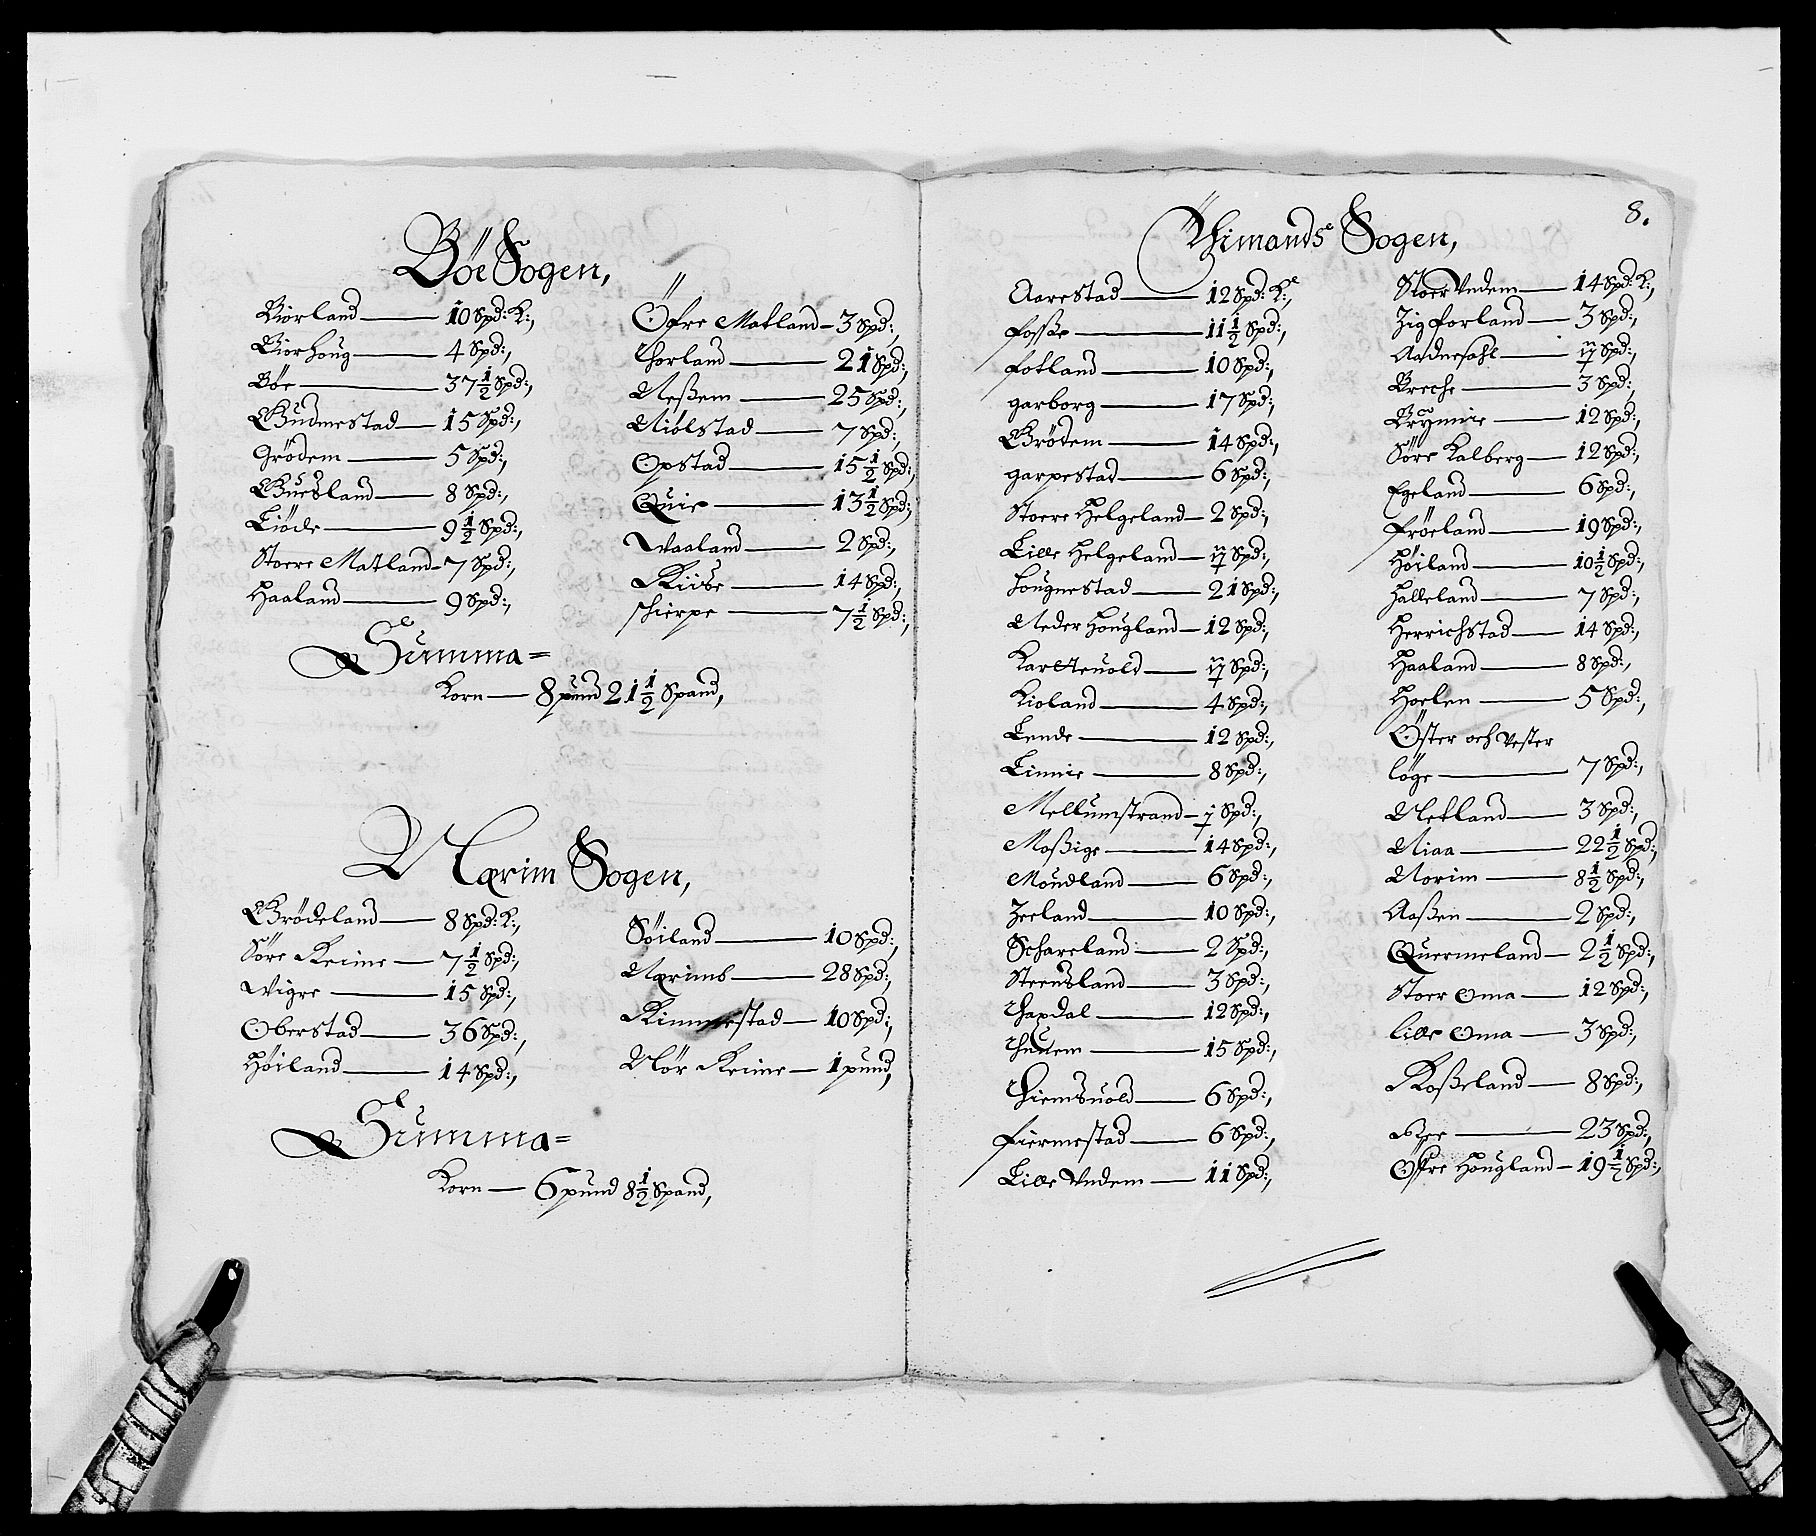 Böe Sogen,
Börland — 10 Spd: K:,
Biorhoug — 4 Spd:,
Böe — 37 1/2 Spd:,
Gudmestad — 15 Spd:,
Grödem — 5 Spd:,
Guesland — 8 Spd:,
Liöde — 9 1/2 Spd:,
Stoere Matland — 7 Spd:,
Haaland — 9 Spd:,
Öfre Matland — 3 Spd:,
Thorland — 21 Spd:,
Neßem — 25 Spd:,
Niölstad — 7 Spd:,
Opstad — 15 1/2 Spd:,
Quie — 13 1/2 Spd:,
Waaland — 2 Spd:,
Riise — 14 Spd:,
schierpe — 7 1/2 Spd:,
Summa =
Korn — 8 pund 21 1/2 Spand,
Nærim Sogen,
Grödeland — 8 Spd: K:,
Söre Reime — 7 1/2 Spd:,
Wigre — 15 Spd:,
Oberstad — 36 Spd:,
Höiland — 14 Spd:,
Söiland — 10 Spd:,
Nærimb — 28 Spd:,
Rimmestad — 10 Spd:,
Nör Reime — 1 pund,
Summa =
Korn — 6 pund 8 1/2 Spand,
8.
Thimands Sogen,
Aarestad — 12 Spd: K:,
Foße — 11 1/2 Spd:,
Fotland — 10 Spd:,
garborg — 17 Spd:,
Grödem — 14 Spd:,
garpestad — 6 Spd:,
Stoere Helgeland — 2 Spd:,
Lille Helgeland — Spd:,
Hougnestad — 21 Spd:,
Neder Hougland — 12 Spd:,
Karsteuold — Spd:,
Kioland — 4 Spd:,
Lende — 12 Spd:,
Limie — 8 Spd:,
Mellumstrand — Spd:,
Moßige — 14 Spd:,
Moudland — 6 Spd:,
Zeeland — 10 Spd:,
Schareland — 2 Spd:,
Steensland — 3 Spd:,
Thaxdal — 12 Spd:,
Thuuem — 15 Spd:,
Thiemsuold — 6 Spd:,
Fiermestad — 6 Spd:,
Lille Vndem — 11 Spd:,
Stoer Vndem — 14 Spd: K:,
Zigforland — 3 Spd:,
Aadnesahl — Spd:,
Breche — 3 Spd:,
Brymie — 12 Spd:,
Söre Kalberg — 12 Spd:,
Egeland — 6 Spd:,
Fröeland — 19 Spd:,
Höiland — 10 1/2 Spd:,
Halleland — 7 Spd:,
Herrichstad — 14 Spd:,
Haaland — 8 Spd:,
Hoelen — 5 Spd:,
Öster och Vester
löge — 7 Spd:,
Netland — 3 Spd:,
Niaa — 22 1/2 Spd:,
Norim — 8 1/2 Spd:,
Aaßen — 2 Spd:,
Quermeland — 2 1/2 Spd:,
Stoer Oma — 12 Spd:,
lille Oma — 3 Spd:,
Roßeland — 8 Spd:,
— 23 Spd:,
Öfre Hougland — 19 1/2 Spd:,